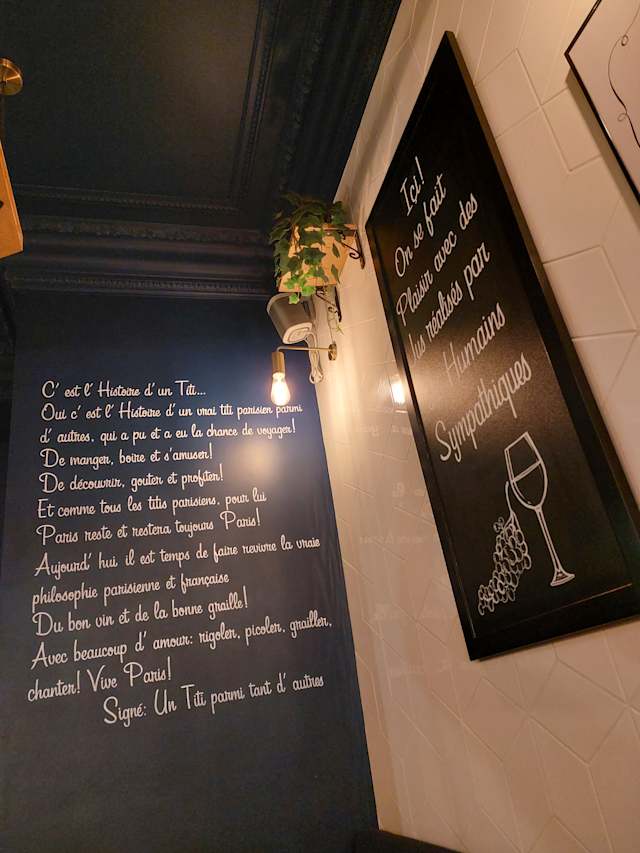 C' est l' Histoire d' un Titi...
Oui c' est l' Histoire d' un vrai titi parisien parmi
d' autres, qui a pu et a eu la chance de voyager!
De manger, boire et s'amuser!
De découvrir, gouter et profiter!
Et comme tous les titis parisiens, pour lui
Paris reste et restera toujours Paris!
Aujourd' hui il est temps de faire revivre la vraie
philosophie parisienne et française
Du bon vin et de la bonne graille!
Avec beaucoup d' amour: rigoler, picoler, grailler,
chanter! Vive Paris!
Signé: Un Titi parmi tant d' autres
Içi!
On se fait
Plaisir avec des
Jus réalisés par
Humains
Sympathiques